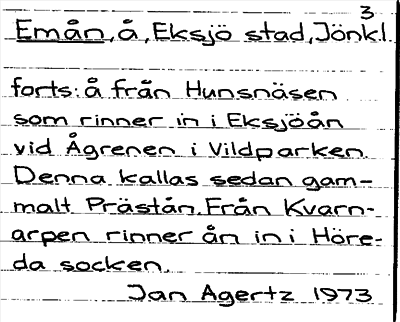 3
Emån, å, Eksjö stad, Jönk.l.
forts: å från Hunsnäsen
som rinner in i Eksjöån
vid Ågrenen i Vildparken.
Denna kallas sedan gam-
malt Prästån. Från Kvarn-
arpen rinner ån in i Höre-
da socken.
Jan Agertz 1973